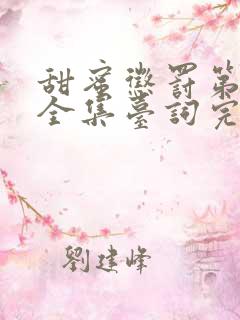 甜蜜懲罰第
全集臺詞完
劉建峰